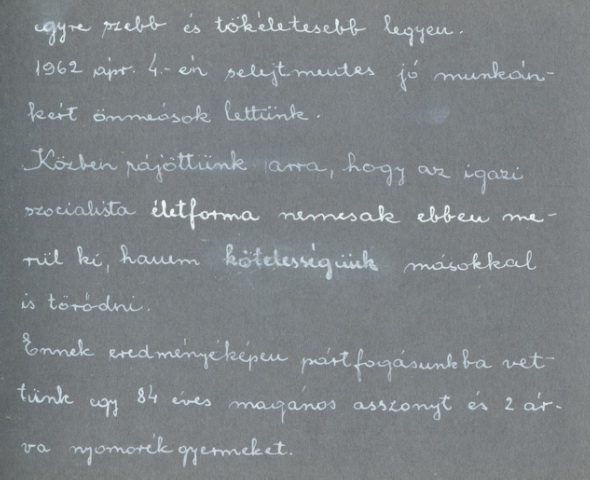 egyre szebb és tökéletesebb legyen.
1962 ápr. 4.-én selejtmentes jó munkán-
kért önmeósok lettünk.
Közben rájöttünk arra, hogy az igazi
szocialista életforma nemcsak ebben me-
rül ki, hanem kötelességünk másokkal
is törődni.
Ennek eredményéképen pártfogásunkba vet
tünk egy 84 éves magános asszonyt és 2 ár-
va nyomorék gyermeket.